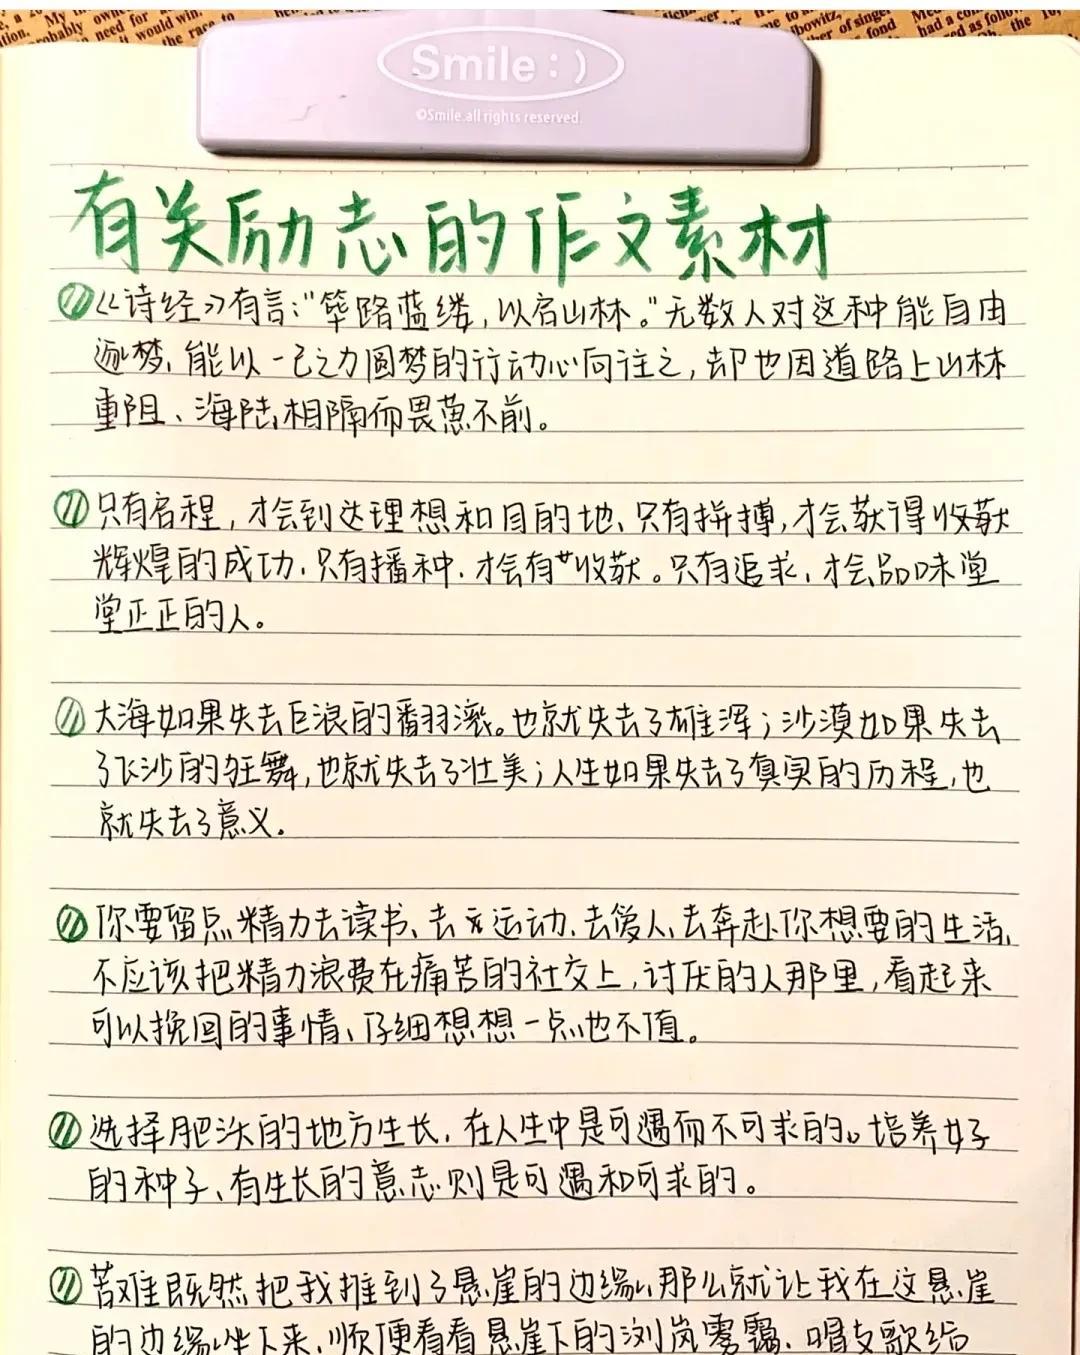 Smile:)
©Smile.all rights reserved.
有关励志的作文素材
《诗经》有言:"筚路蓝缕,以启山林。"无数人对这种能自由
逐梦,能以一己之力圆梦的行动心向往之,却也因道路上山林
重阻、海陆相隔而畏葸不前。
只有启程,才会到达理想和目的地、只有拼搏,才会获得收获
辉煌的成功.只有播种.才会有收获。只有追求,才会品味堂
堂正正的人。
大海如果失去巨浪的翻滚。也就失去了雄浑;沙漠如果失去
了飞沙的狂舞,也就失去了壮美;人生如果失去了真实的历程,也
就失去了意义.
你要留点精力去读书、去运动.去爱人、去奔赴你想要的生活,
不应该把精力浪费在痛苦的社交上,讨厌的人那里,看起来
可以挽回的事情、仔细想想一点也不值。
选择肥沃的地方生长.在人生中是可遇而不可求的。培养好
的种子、有生长的意志则是可遇和可求的。
苦难既然把我推到了悬崖的边缘,那么就让我在这悬崖
的边缘坐下来.顺便看看悬崖下的浏岚雾霭.唱支歌给